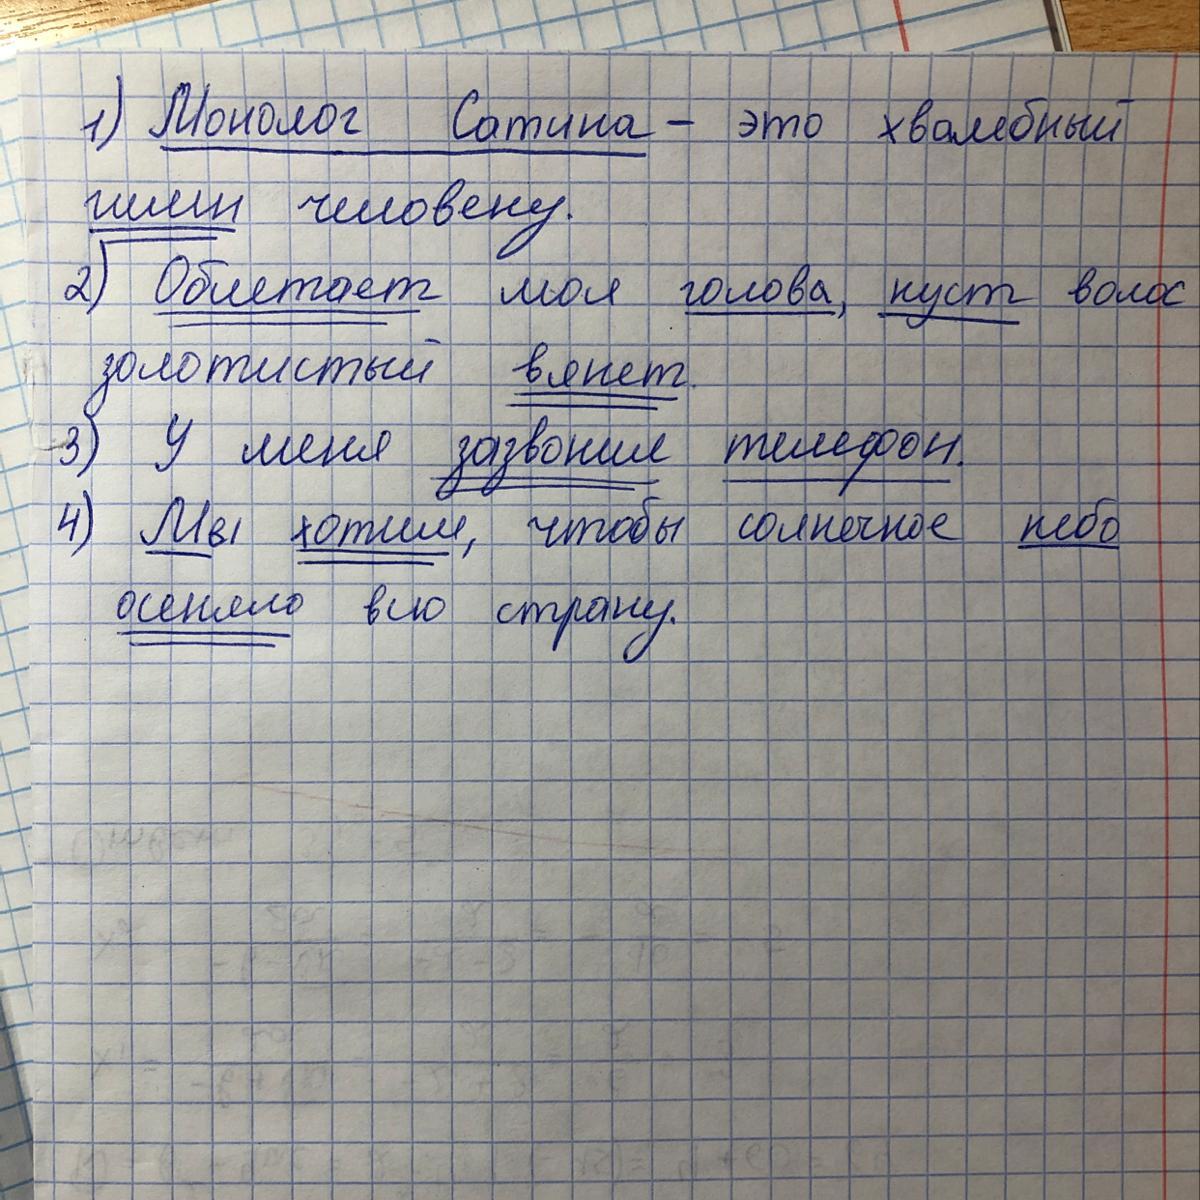 1) Монолог Сатина – это хвалебный
гимн человеку.
2) Облетает моя голова, куст волос
золотистый вянет.
3) У меня зазвонил телефон.
4) Мы хотим, чтобы солнечное небо
осеняло всю страну.